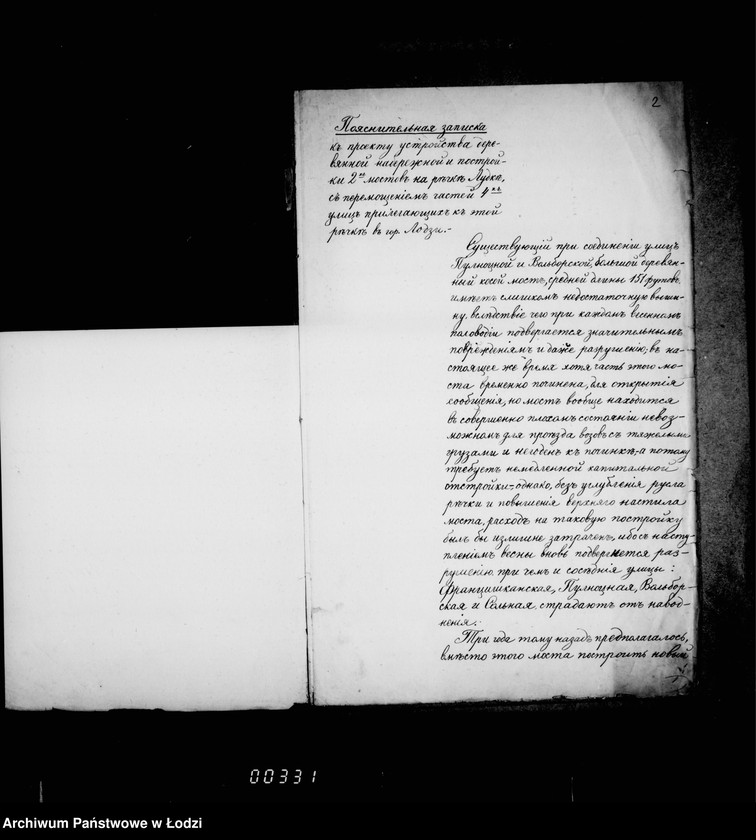 2
Пояснительная записка
къ проекту устройства дере-
вянной набережной и построй-
ки 2хъ мостовъ на рѣчкѣ Лудкѣ,
съ перемощеніемъ частей 4хъ
улицъ прилегающихъ къ этой
рѣчкѣ въ гор. Лодзи.-
Существующій при соединеніи улицъ
Пулноцной и Вольборской, большой деревян-
ный косой мостъ, средней длины 151 футовъ,
имѣетъ слишкомъ недостаточную выши-
ну, вслѣдствіе чего при каждомъ весеннемъ
половодіи подвергается значительнымъ
поврежденіямъ и даже разрушенію; въ на-
стоящее же время хотя часть этого мо-
ста временно починена, для открытія
сообщенія, но мостъ вообще находится
въ совершенно плохомъ состояніи невоз-
можномъ для проѣзда возовъ съ тяжелыми
грузами и негоденъ къ починкѣ, а потому
требуетъ немедленной капитальной
отстройки; однако, безъ углубленія русла
рѣчки и повышенія верхняго настила
моста, расходъ на таковую постройку
былъ бы излишне затраченъ, ибо съ насту-
пленіемъ весны вновь подвергнется раз-
рушенію, при чемъ и сосѣднія улицы:
Францишканская, Пулноцная, Вольбор-
ская и Сольная страдаютъ отъ навод-
ненія.
Три года тому назадъ предполагалось,
вмѣсто этого моста построить новый
00331
Archiwum Państwowe w Łodzi